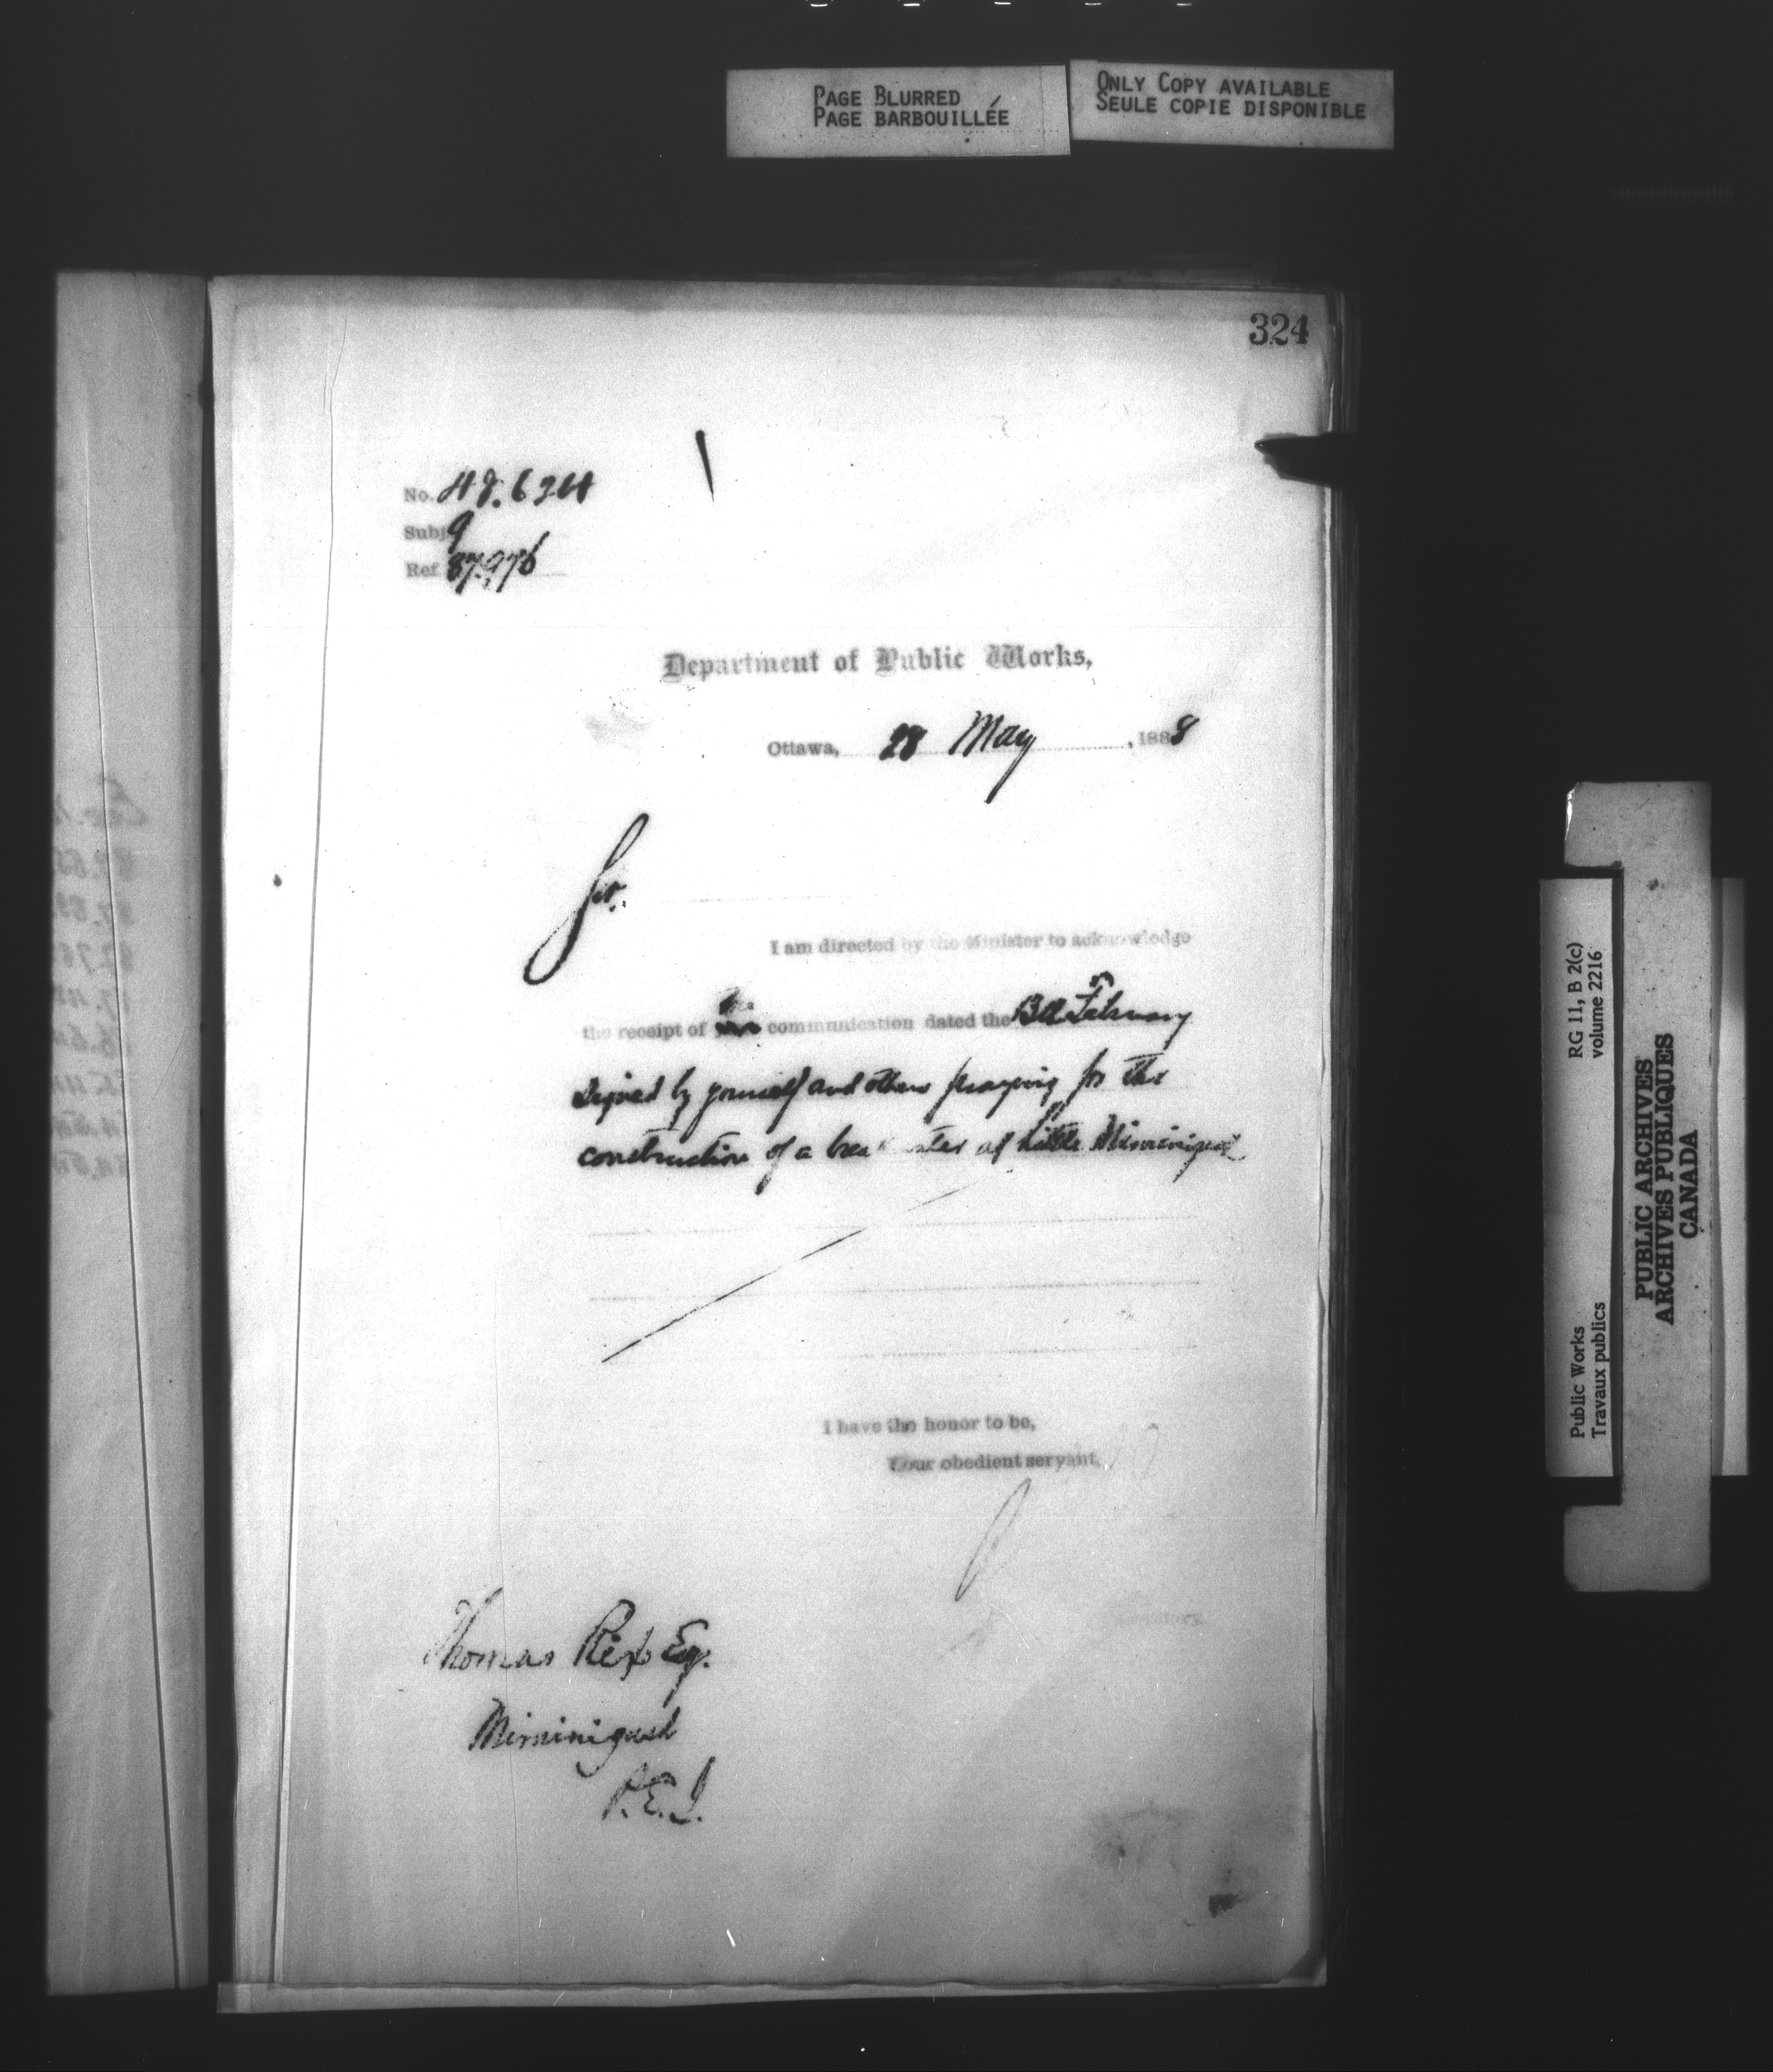 PAGE BLURRED
PAGE BARBOUILLÉE
ONLY COPY AVAILABLE
SEULE COPIE DISPONIBLE
324
No.
Subj 9
Ref 87.976
Department of Public Works,
Ottawa, 28 May, 1888
Sir.
I am directed by the Minister to acknowledge
the receipt of the communication dated the February
signed by yourself and others praying for the
construction of a breakwater at Little Miminigash
I have the honor to be,
Your obedient servant,
Secretary.
Thomas Rix Esq.
Miminigash
P.E.I.
Public Works
Travaux publics
RG 11, B 2(c)
volume 2216
PUBLIC ARCHIVES
ARCHIVES PUBLIQUES
CANADA